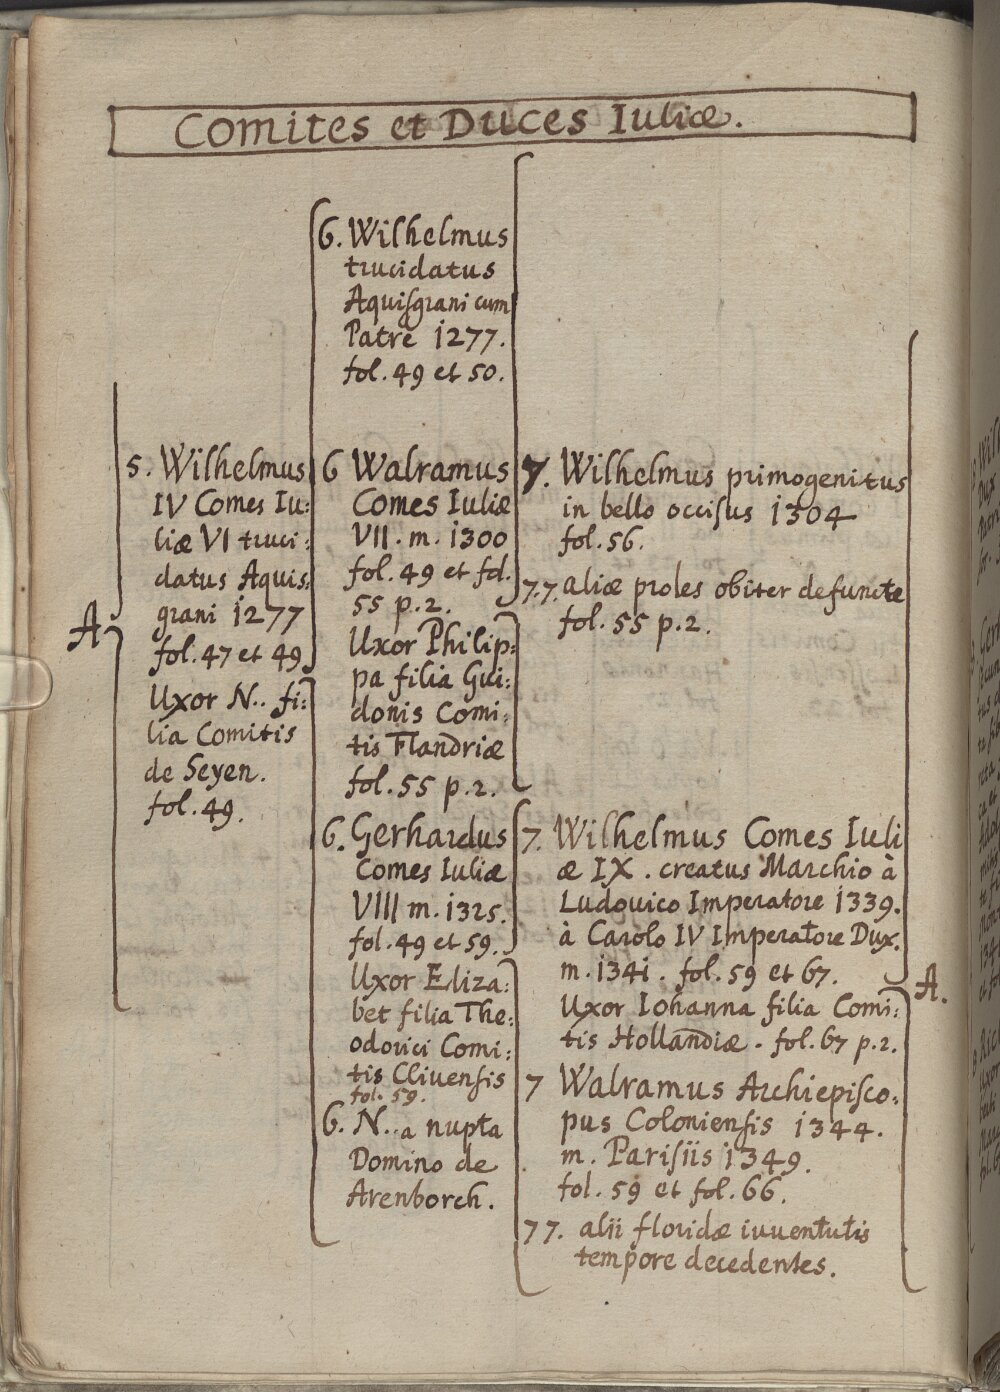 Comites et Duces Iuliæ.
A.
5. Wilhelmus
IV Comes Iu:
liæ VI truci:
datus Aquis:
grani 1277
fol. 47 et 49
Uxor N.. fi:
lia Comitis
de Seyen.
fol. 49.
6. Wilhelmus
trucidatus
Aquiſgrani cum
Patre 1277.
fol. 49 et 50.
6 Walramus
Comes Iuliæ
VII. m. 1300
fol. 49 et fol.
55 p. 2.
Uxor Philip:
pa filia Gui:
donis Comi:
tis Flandriæ
fol. 55 p. 2.
6. Gerhardus
Comes Iuliæ
VIII m. 1325.
fol. 49 et 59.
Uxor Eliza:
bet filia The:
odorici Comi:
tis Cliuenſis
fol. 59.
6. N..a nupta
Domino de
Arenborch.
7. Wilhelmus primogenitus
in bello occiſus 1304
fol. 56.
7.7. aliæ proles obiter defuncte
fol. 55 p. 2.
7. Wilhelmus Comes Iuli
æ IX. creatus Marchio à
Ludouico Imperatore 1339.
à Carolo IV Imperatore Dux.
m. 1341. fol. 59 et 67.
Uxor Iohanna filia Comi:
tis Hollandiæ. fol. 67 p. 2.
7 Walramus Archiepiſco:
pus Colonienſis 1344.
m. Pariſiis 1349.
fol. 59 et fol. 66.
77. alii floridæ iuuentutis
tempore decedentes.
A.